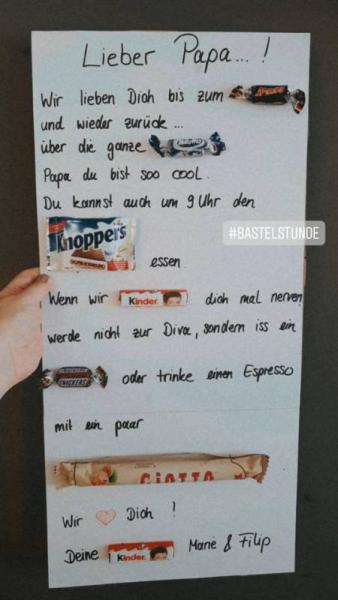 Lieber Papa...!
Wir lieben Dich bis zum MARS
und wieder zurück ...
über die ganze
Papa du bist soo COOL.
Du kannst auch um 9 Uhr den
#BASTELSTUNDE
Knoppers essen.
Wenn wir Kinder dich mal nerven
werde nicht zur Diva, sondern iss ein
SNICKERS oder trinke einen Espresso
mit ein paar
GIOTTO
Wir Dich !
Deine Kinder Marie & Filip